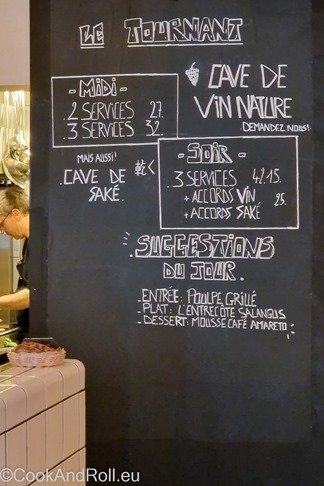 LE TOURNANT
- MIDI -
2 SERVICES 27.
3 SERVICES 32.
CAVE DE
VIN NATURE
DEMANDEZ NOUS!
MAIS AUSSI!
CAVE DE
SAKÉ.
- SOIR -
3 SERVICES 42.15.
+ ACCORDS VIN 25.
+ ACCORDS SAKÉ
SUGGESTIONS
DU JOUR.
ENTRÉE: POULPE GRILLÉ
PLAT: L'ENTRECÔTE
DESSERT: MOUSSE CAFÉ AMARETO
©CookAndRoll.eu